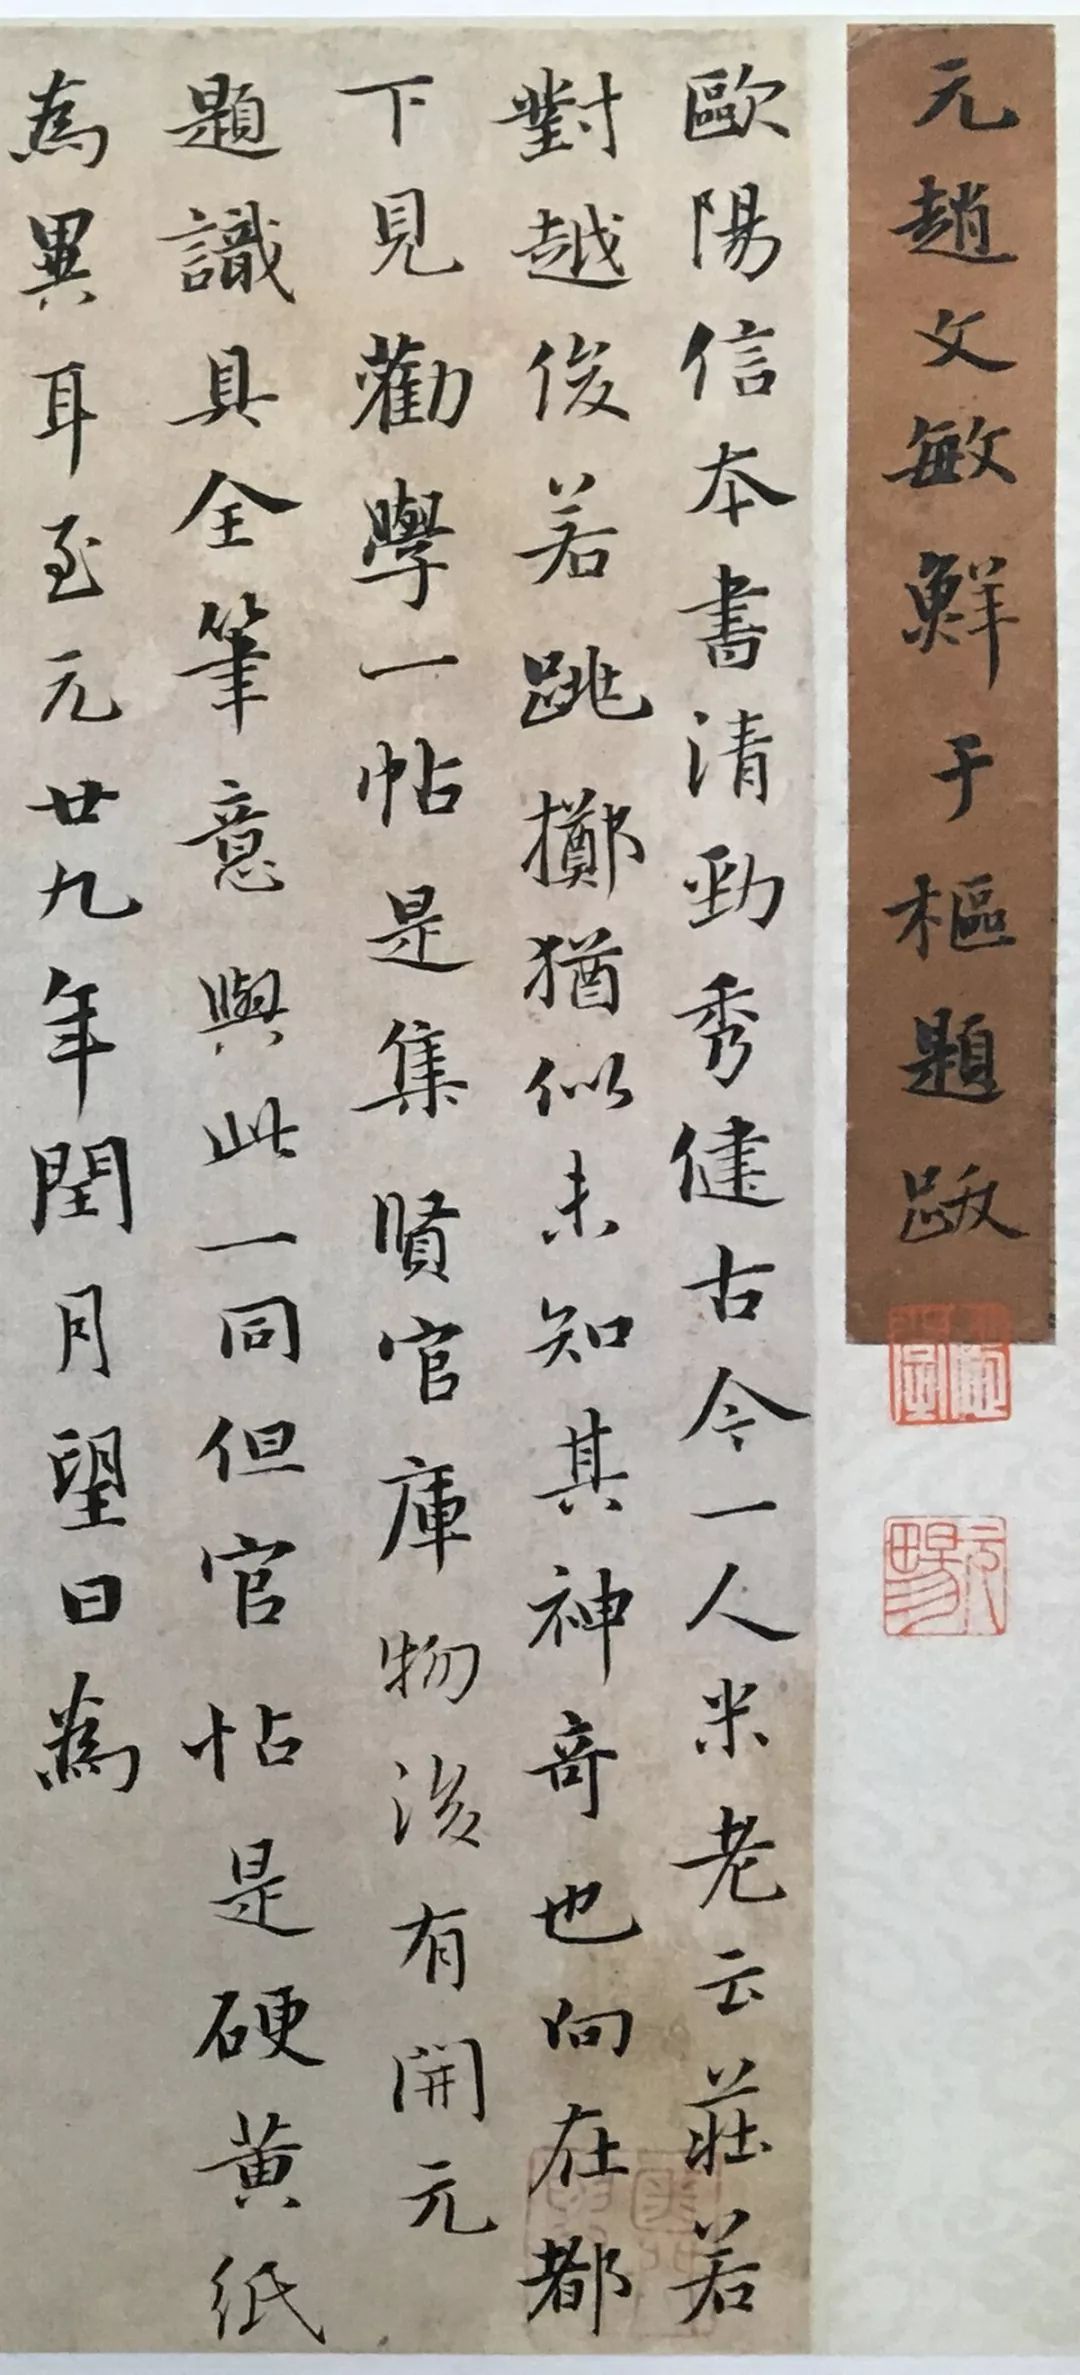 元趙文敏鮮于樞題跋
歐陽信本書清勁秀健古今一人米老云莊若
對越俊若跳擲猶似未知其神奇也向在都
下見勸學一帖是集賢官庫物後有開元
題識具全筆意與此一同但官帖是硬黄紙
為異耳至元廿九年閏月望日為